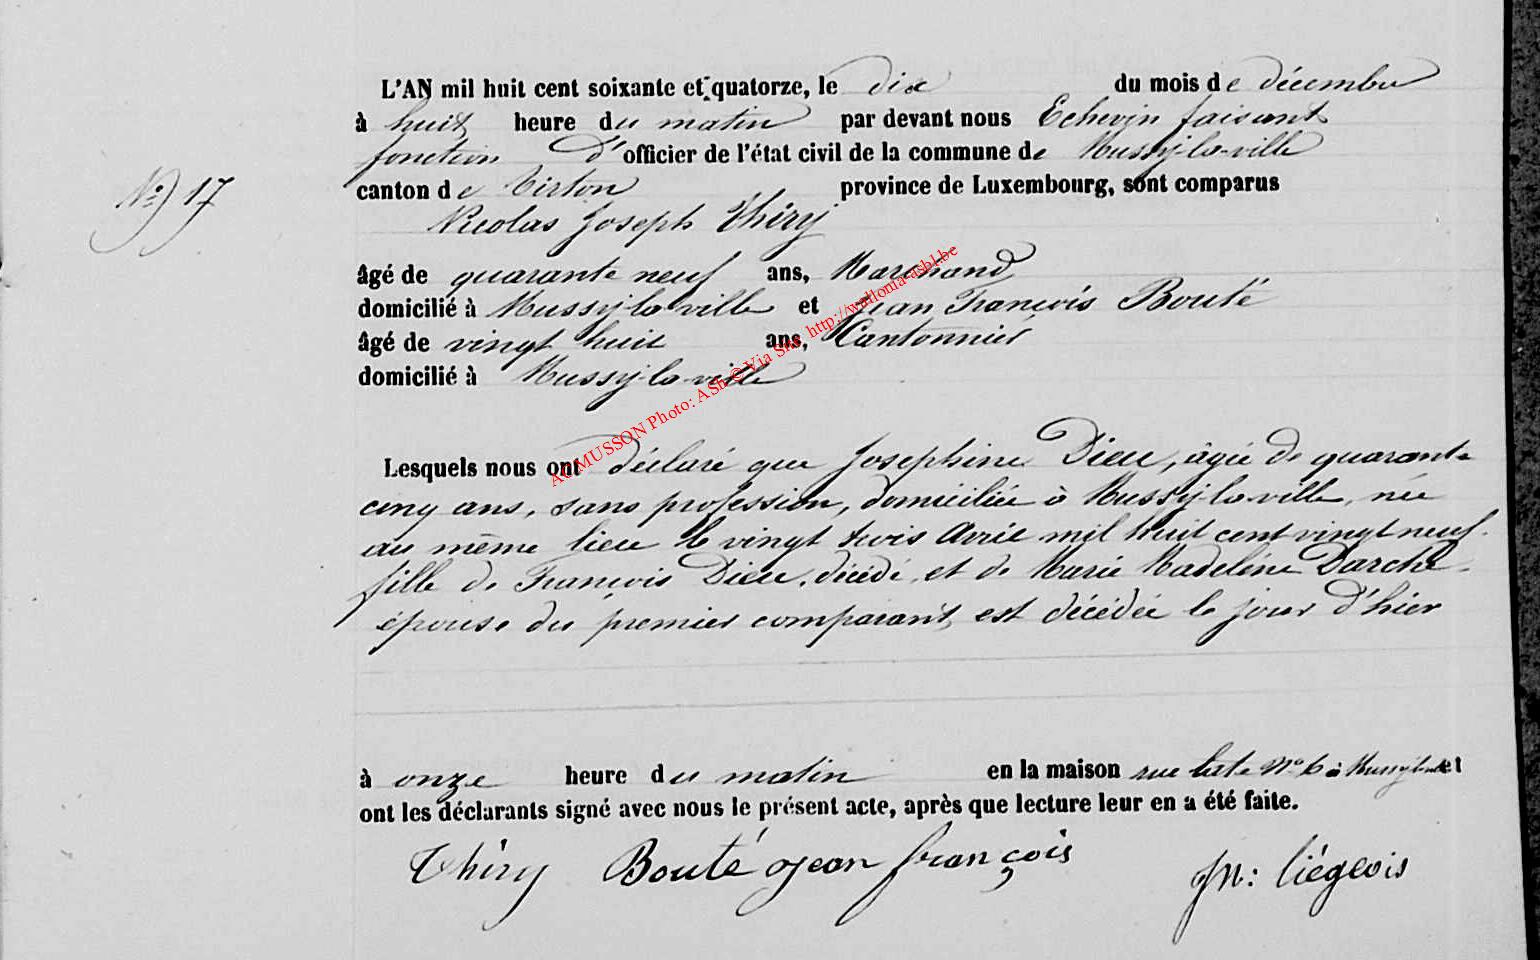 L'AN mil huit cent soixante et quatorze, le dix du mois de décembre
à huit heure du matin par devant nous Echevin faisant
fonction d'officier de l'état civil de la commune de Mussy-la-ville
N° 17
canton de Virton province de Luxembourg, sont comparus
Nicolas Joseph Thiry
âgé de quarante neuf ans, Marchand
domicilié à Mussy-la-ville et Jean François Bouté
âgé de vingt huit ans, Cantonnier
domicilié à Mussy-la-ville
AC MUSSON Photo: ASh © Via Sne http://wallonia-asbl.be
Lesquels nous ont déclaré que Josephine Dieu, âgée de quarante
cinq ans, sans profession, domiciliée à Mussy-la-ville, née
au même lieu le vingt trois Avril mil huit cent vingt neuf
fille de François Dieu, décédé, et de Marie Madeleine Darche
épouse du premier comparant, est décédée le jour d'hier
à onze heure du matin en la maison rue N° 6 à Mussy-la-ville et
ont les déclarants signé avec nous le présent acte, après que lecture leur en a été faite.
Thiry Bouté jean françois Jn: Liégeois